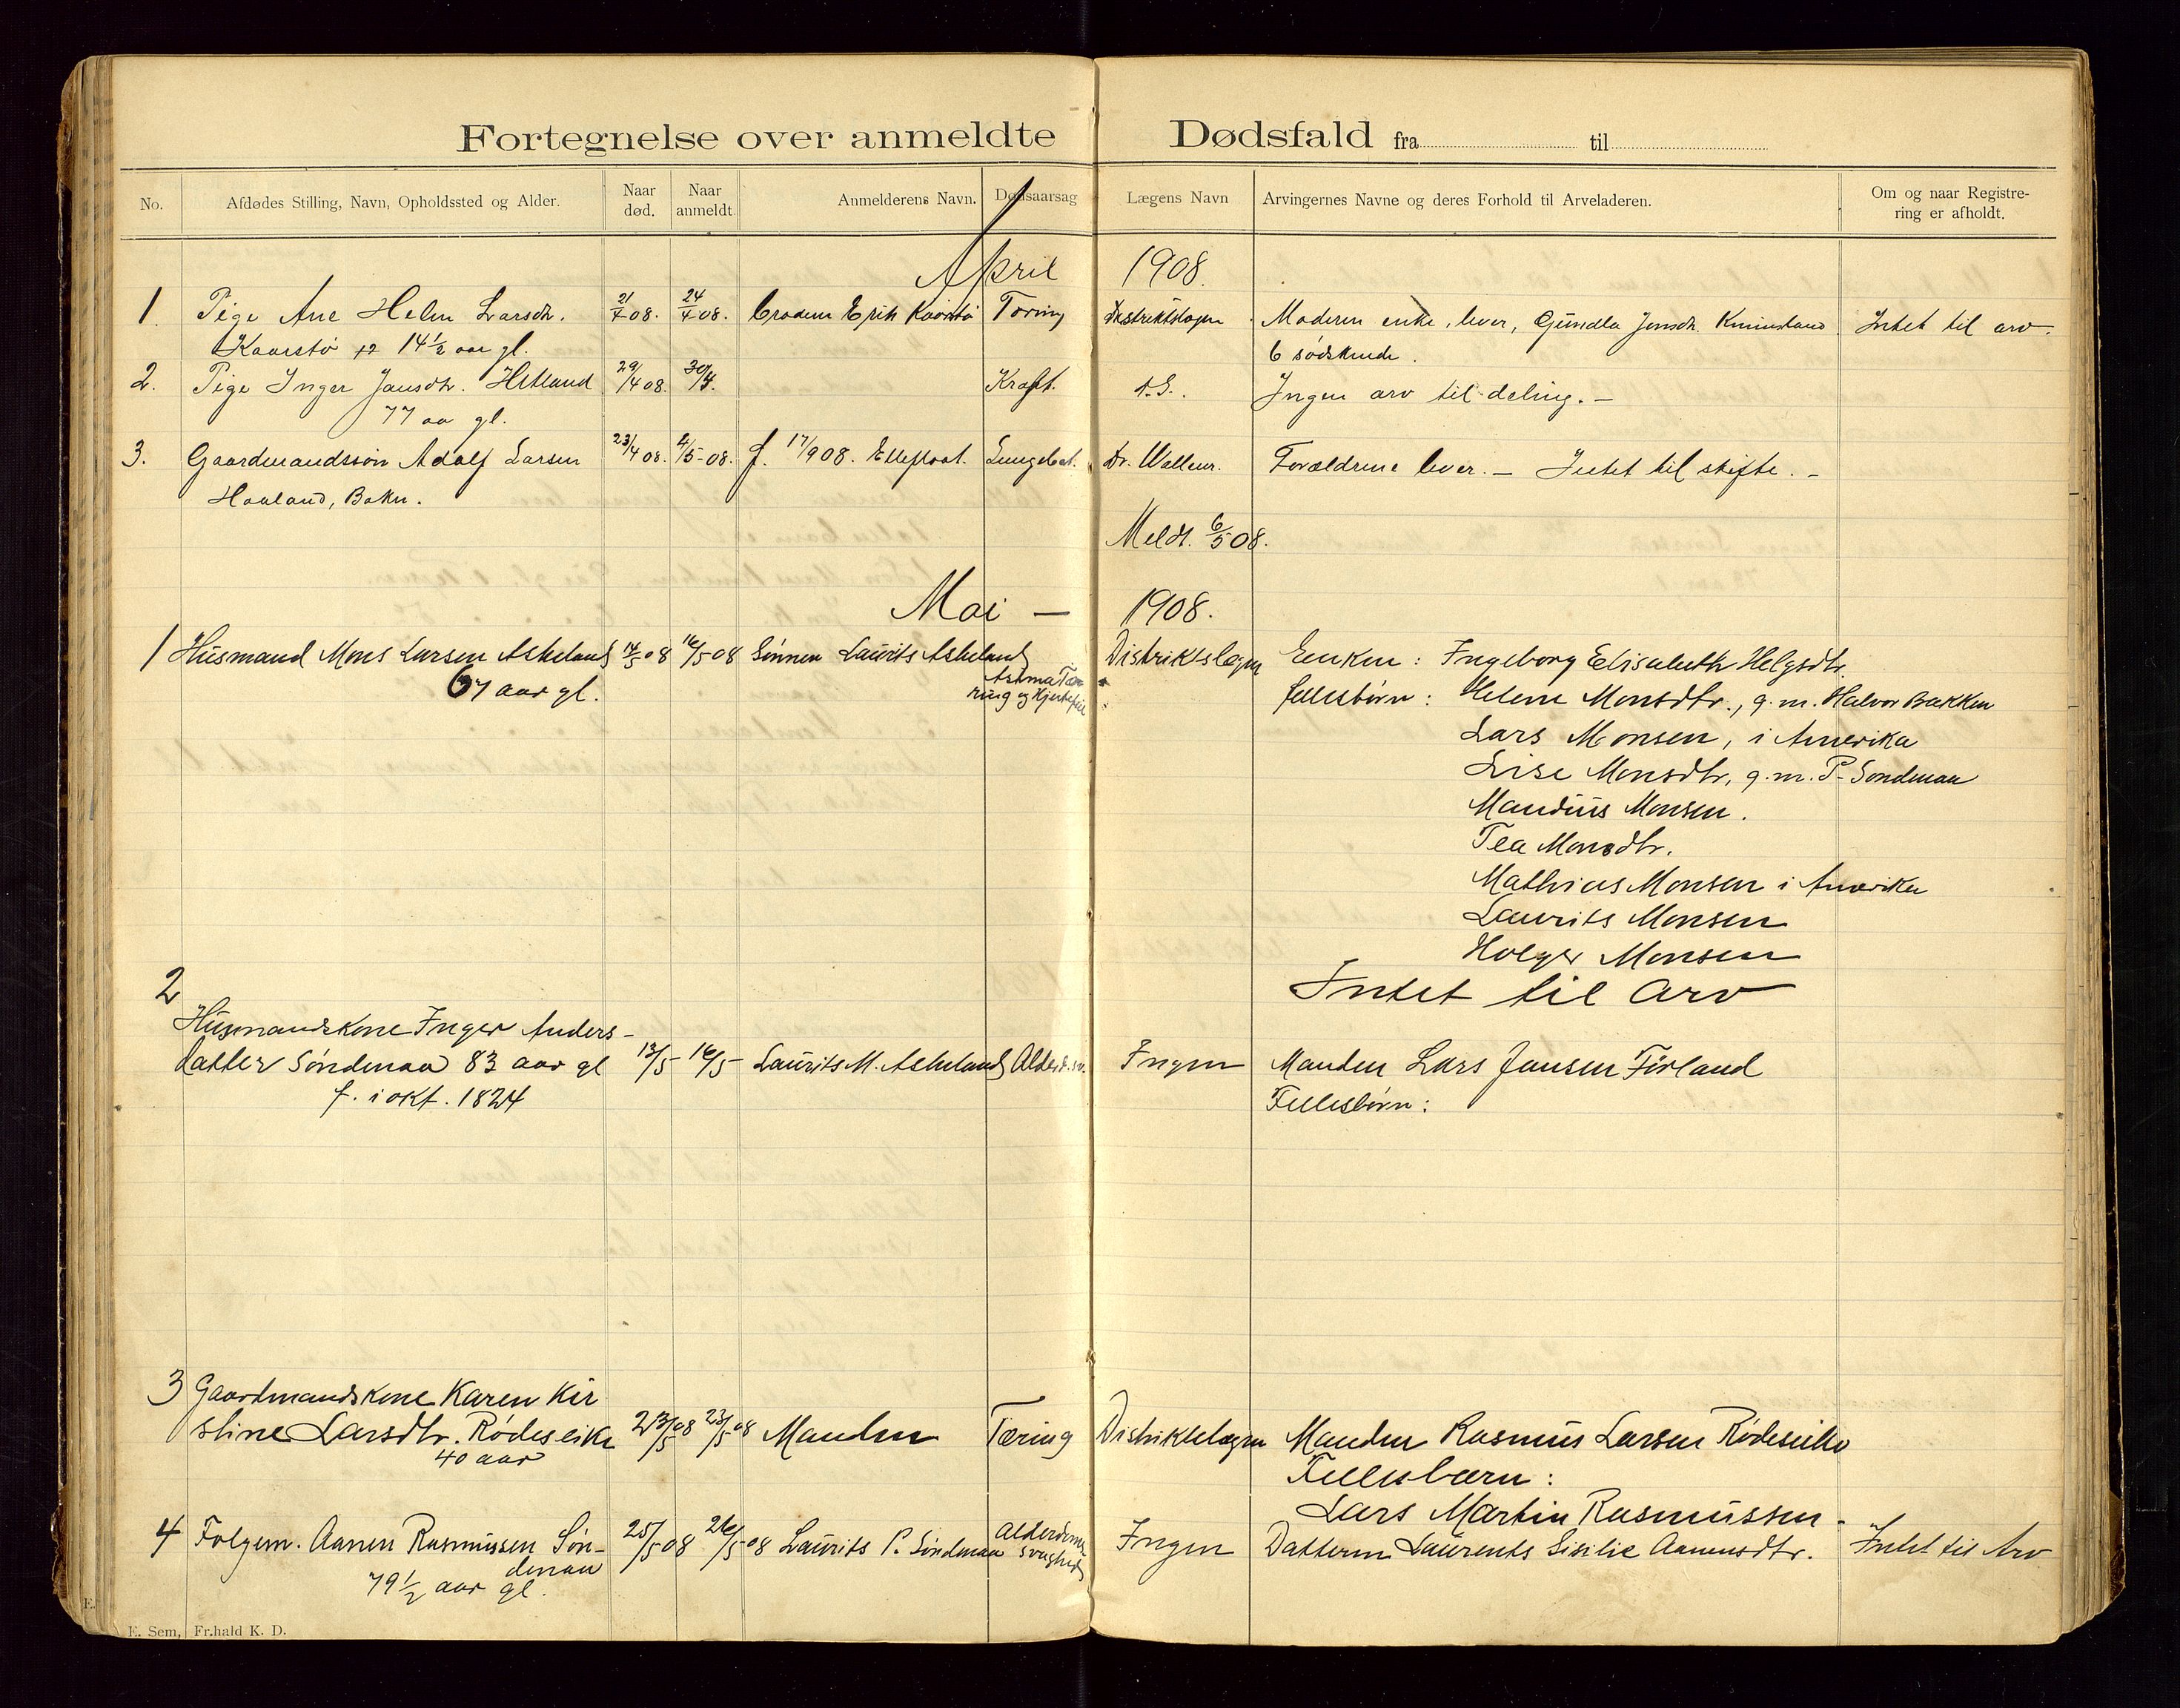 Fortegnelse over anmeldte Dødsfald fra til
No. Afdødes Stilling, Navn, Opholdssted og Alder. Naar død. Naar anmeldt. Anmelderens Navn. Dødsaarsag Lægens Navn Arvingernes Navne og deres Forhold til Arveladeren. Om og naar Registrering er afholdt.
April 1908.
1. Pige Ane Helen Larsdtr. 21/4 08. 24/4 08. Broderen Erik Kaarstø Tæring Distriktslægen Moderen enke, lever, Gundla Jonsdtr. Intet til arv.
Kaarstø 14½ aar gl. 6 sødskende.
2. Pige Inger Jansdtr. Hetland 29/4 08. 30/4. Kræft. d.s. Ingen arv til deling. —
77 aa gl.
3. Gaardmandssøn Adolf Larsen 23/4 08. 4/5-08. f. 17/9 08. Lungebet. Dr. Forældrene lever. — Intet til skifte. —
Haaland, Bokn.
Meldt. 6/5 08.
Mai — 1908.
1 Husmand Mons Larsen Askeland 14/5 08 16/5 08 Sønnen Laurits Askeland Distriktslægen Enken: Ingeborg Elisabeth Helgesdtr.
67 aar gl. Astma Tæring og Hjertefeil fellesbørn: Helene Monsdtr., g.m. Halvor Bakken
Lars Monsen, i Amerika
Lise Monsdtr, g.m. P. Søndenaa
Mandius Monsen.
Tea Monsdtr.
Mathias Monsen i Amerika
Laurits Monsen
Holger Monsen
Intet til Arv
2
Husmandskone Inger Anders-
datter Søndenaa 83 aar gl 13/5 16/5 Laurits M. Askeland Alderd.sv. Ingen Manden Lars Jansen Førland
f. i okt. 1824 Fellesbørn:
3 Gaardmandskone Karen Kir
stine Larsdtr. Rødeseike 23/5 08 23/5 08 Manden Tæring Distriktslægen Manden Rasmus Larsen Rødeseike
40 aar Fellesbørn:
Lars Martin Rasmussen.
4 Folgem. Aanen Rasmussen Søn- 25/5 08 26/5 08 Laurits P. Søndenaa Alderdoms Ingen Datteren Laurents Sisilie Aanensdtr. Intet til Arv
denaa svaghed
79½ aar gl.
E. Sem, Fr.hald K. D.